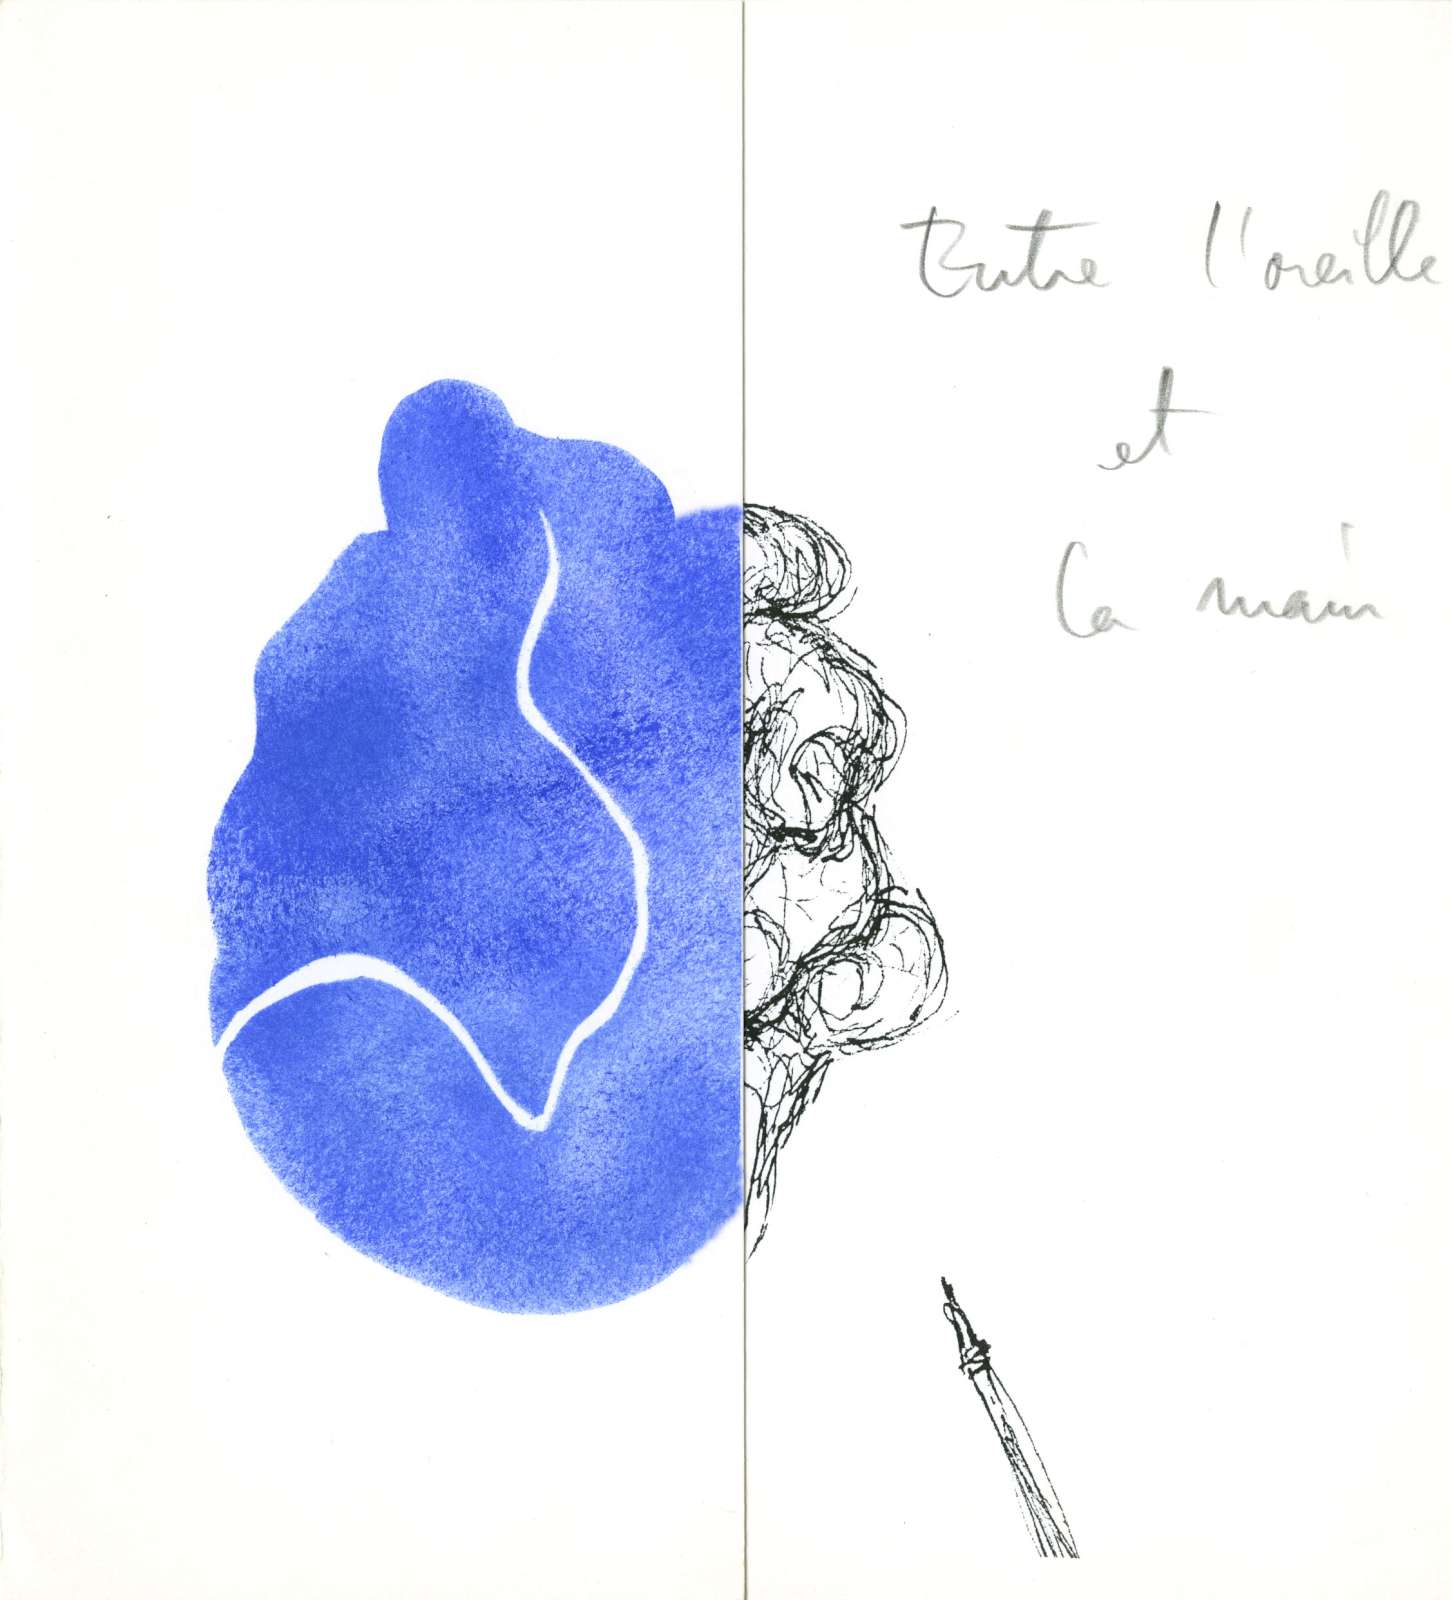 Entre l'oreille
et
la main